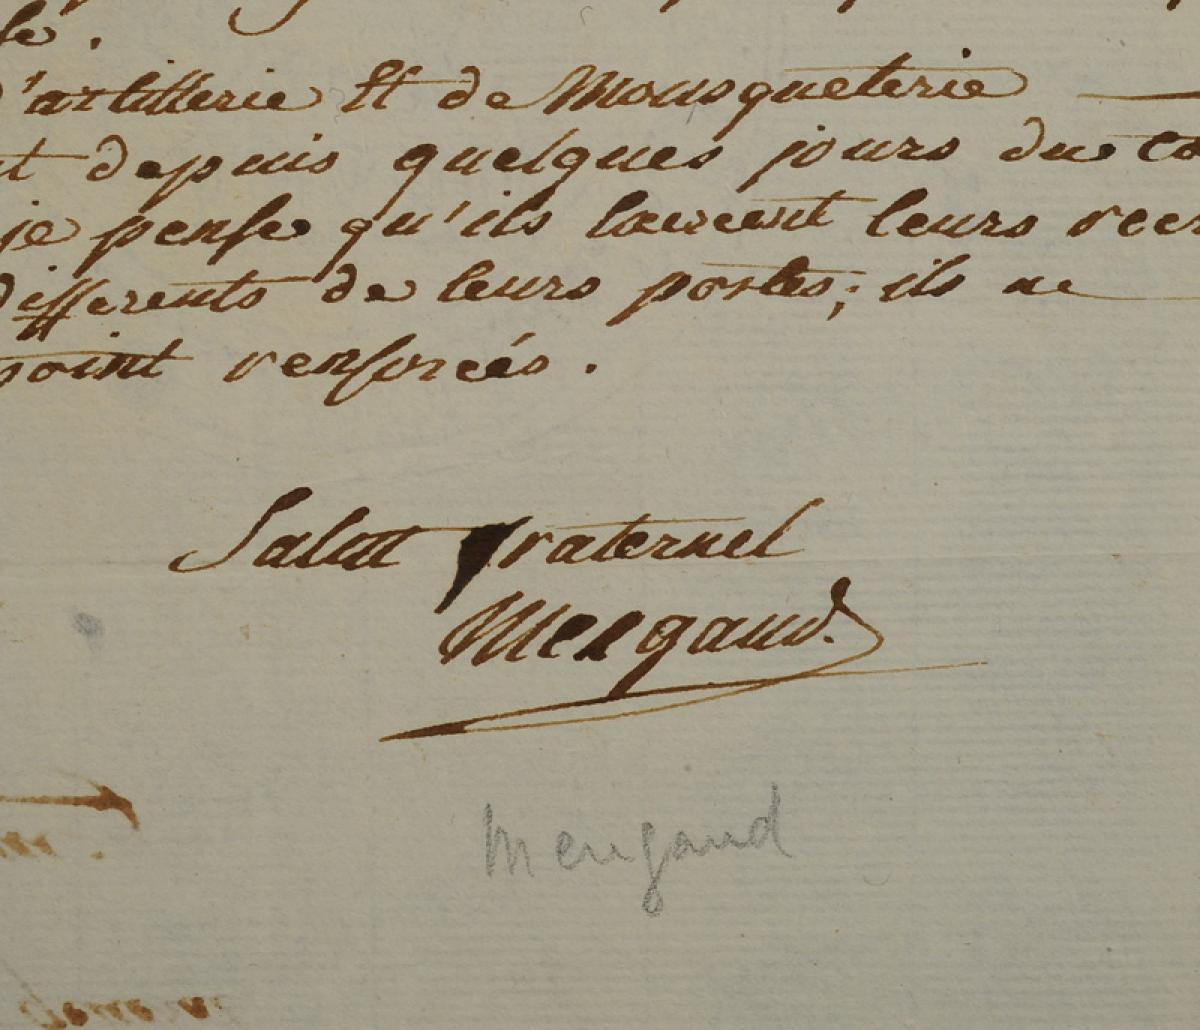 se.
d'artillerie Et de Mousqueterie
t depuis quelques jours du co
je pense qu'ils leurs
differents de leurs postes; ils ne
point renforcés.
Salut fraternel
Mengaud
Mengaud